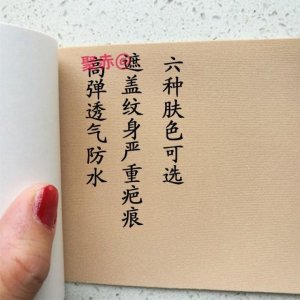 六种肤色可选
遮盖纹身严重疤痕
高弹透气防水